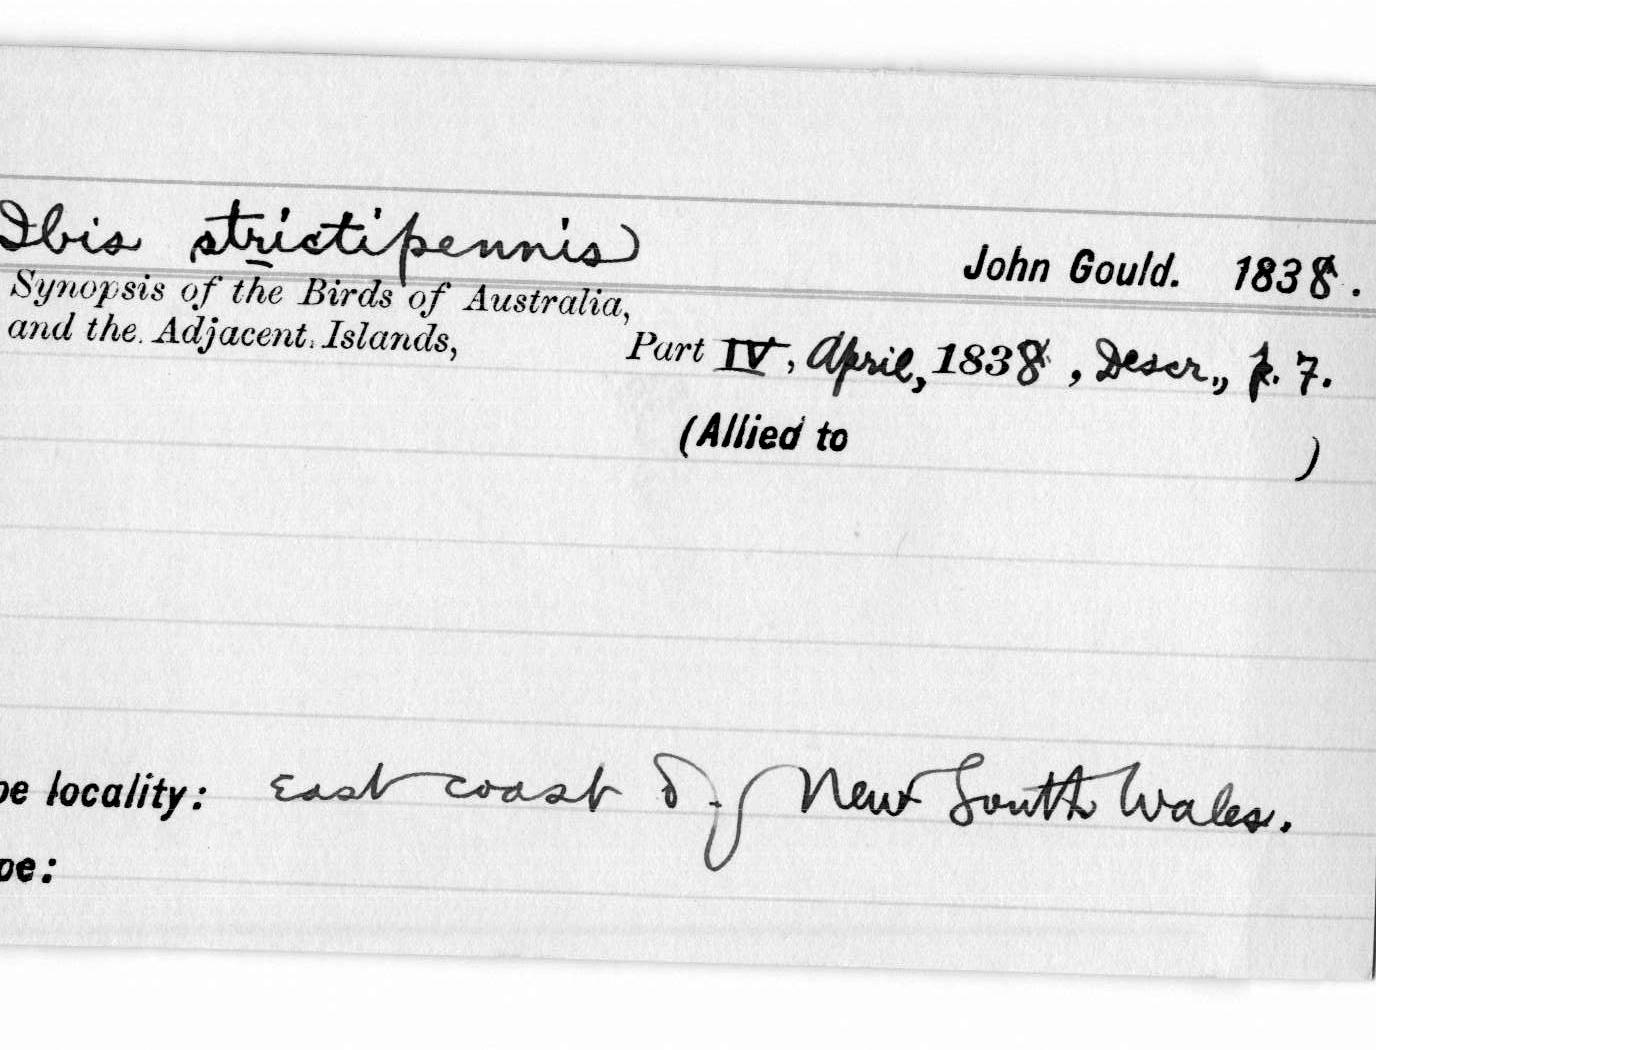 Ibis strictipennis John Gould. 1838.
Synopsis of the Birds of Australia,
and the Adjacent Islands, Part IV, April, 1838, Descr., p. 7.
(Allied to )
pe locality: East coast of New South Wales.
pe: